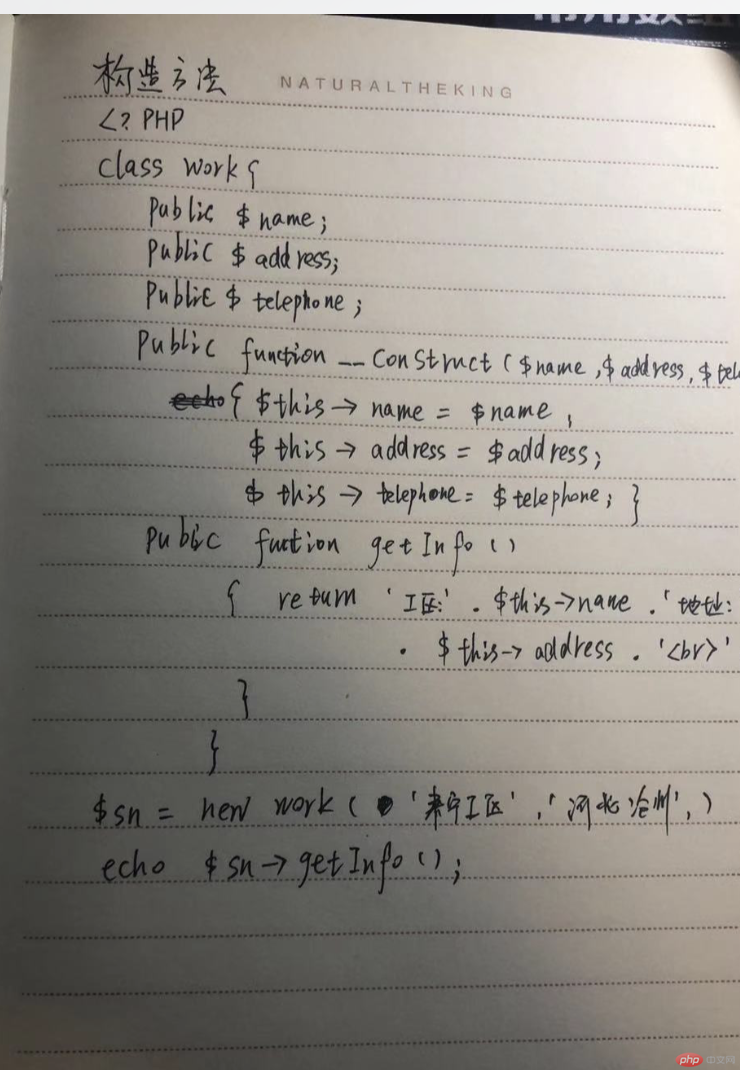 构造方法 NATURALTHEKING
<? PHP
class work{
public $name;
public $address;
public $telephone;
public function __construct($name,$address,$tel
echo{ $this->name = $name,
$this->address = $address;
$this->telephone = $telephone; }
public fuction getInfo()
{ return '工区:' . $this->name . '地址:
. $this->address . '<br>'
}
}
$sn = new work( '肃宁工区','河北沧州',)
echo $sn->getInfo();
php 中文网